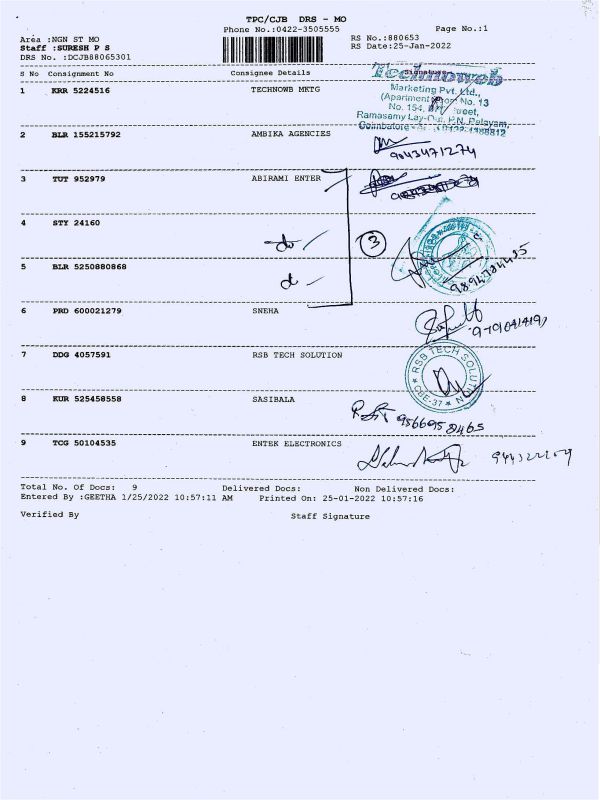 TPC/CJB DRS - MO
Phone No.:0422-3505555 Page No.:1
Area :NGN ST MO RS No.:880653
Staff :SURESH P S RS Date:25-Jan-2022
DRS No. :DCJB88065301
S No Consignment No Consignee Details Signature
Technoweb
1 KRR 5224516 TECHNOWB MKTG Marketing Pvt. Ltd.,
No. 13
No. 154,
Ramasamy Lay-Out, P.N. Palayam,
Coimbatore
2 BLR 155215792 AMBIKA AGENCIES
9043471274
3 TUT 952979 ABIRAMI ENTER
4 STY 24160 do 3
5 BLR 5250880868 do
6 PRD 600021279 SNEHA
7 DDG 4057591 RSB TECH SOLUTION
RSB TECH SOLUTION
CBE-37
8 KUR 525458558 SASIBALA
9566958465
9 TCG 50104535 ENTEK ELECTRONICS
Total No. Of Docs: 9 Delivered Docs: Non Delivered Docs:
Entered By :GEETHA 1/25/2022 10:57:11 AM Printed On: 25-01-2022 10:57:16
Verified By Staff Signature